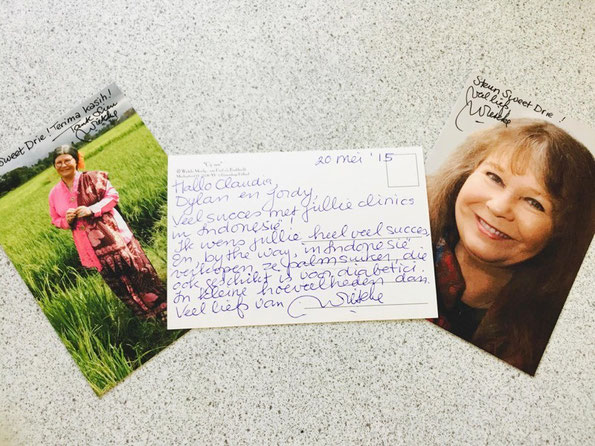 Sweet Drie! Terima kasih!
Wieteke
20 mei '15
Hallo Claudia
Dylan en Jordy,
Veel succes met jullie clinics
in Indonesië!
Ik wens jullie heel veel succes
En, by the way, in Indonesië
verkopen ze palmsuiker, die
ook geschikt is voor diabetici.
In kleine hoeveelheden dan.
Veel liefs van
Steun Sweet Drie!
Veel liefs,